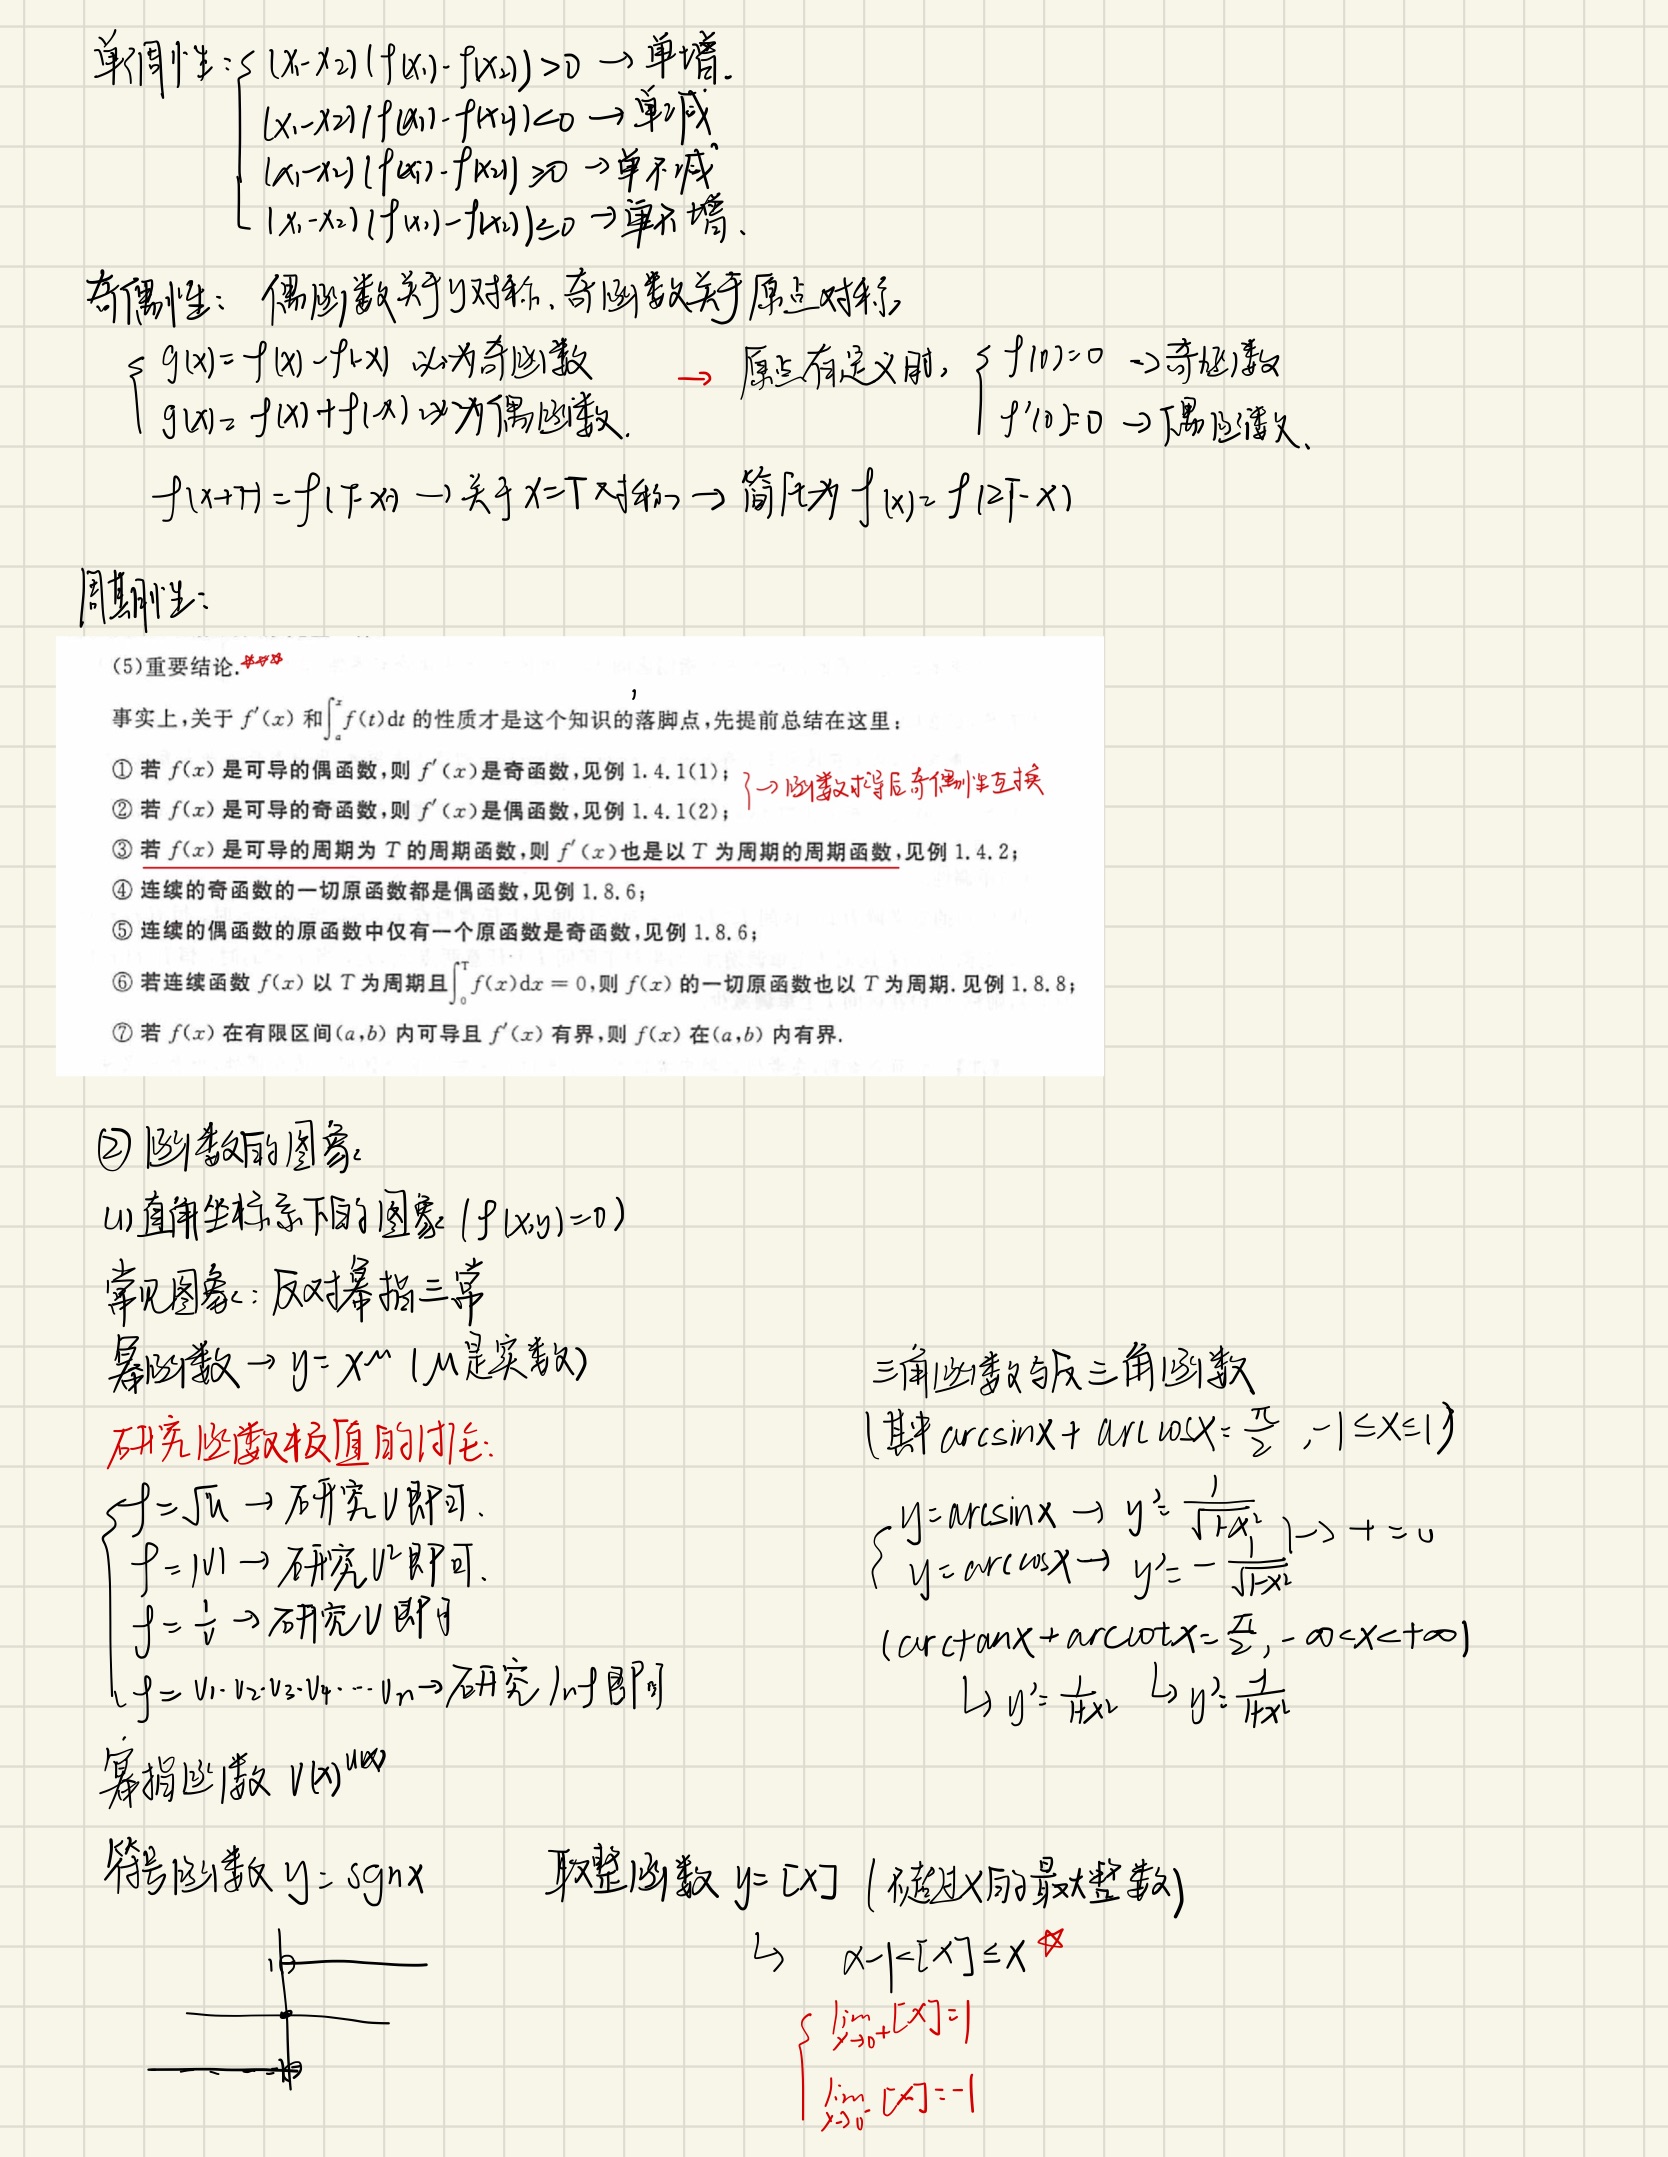 单调性：{ (x₁-x₂)(f(x₁)-f(x₂))>0 → 单增.
(x₁-x₂)(f(x₁)-f(x₂))<0 → 单减
(x₁-x₂)(f(x₁)-f(x₂))≥0 → 单不减
(x₁-x₂)(f(x₁)-f(x₂))≤0 → 单不增、
奇偶性：偶函数关于y对称、奇函数关于原点对称,
{ g(x)=f(x)-f(-x) 必为奇函数
g(x)=f(x)+f(-x) 必为偶函数.
→ 原点有定义时, { f(0)=0 → 奇函数
f'(0)=0 → 偶函数、
f(x+T)=f(T-x) → 关于x=T对称 → 简化为 f(x)=f(2T-x)
周期性：
(5)重要结论.☆☆☆
事实上,关于 f′(x) 和∫ₐˣ f(t)dt 的性质才是这个知识的落脚点,先提前总结在这里:
① 若 f(x) 是可导的偶函数,则 f′(x)是奇函数,见例 1.4.1(1);
② 若 f(x) 是可导的奇函数,则 f′(x)是偶函数,见例 1.4.1(2);
} → 函数求导后奇偶性互换
③ 若 f(x) 是可导的周期为 T 的周期函数,则 f′(x)也是以 T 为周期的周期函数,见例 1.4.2;
④ 连续的奇函数的一切原函数都是偶函数,见例 1.8.6;
⑤ 连续的偶函数的原函数中仅有一个原函数是奇函数,见例 1.8.6;
⑥ 若连续函数 f(x) 以 T 为周期且∫₀ᵀ f(x)dx = 0,则 f(x) 的一切原函数也以 T 为周期. 见例 1.8.8;
⑦ 若 f(x) 在有限区间(a,b) 内可导且 f′(x) 有界,则 f(x) 在(a,b) 内有界.
② 函数的图象
(1) 直角坐标系下的图象 (f(x,y)=0)
常见图象：反对幂指三常
幂函数 → y=x^μ (μ是实数)
研究函数极值的讨论:
{ f=√u → 研究U即可.
f=|U| → 研究U²即可.
f=1/U → 研究U即可
f=U₁·U₂·U₃·U₄·…Uₙ → 研究 lnf 即可
三角函数与反三角函数
(其中 arcsinx + arccosx = π/2 , -1≤x≤1)
{ y=arcsinx → y'=1/√(1-x²)
y=arccosx → y'=-1/√(1-x²)
} → + = 0
(arctanx+arccotx=π/2, -∞<x<+∞)
↳ y'=1/(1+x²) ↳ y'=-1/(1+x²)
幂指函数 V(x)^u(x)
符号函数 y=sgnx
取整函数 y=[x] (不超过x的最大整数)
↳ x-1<[x]≤x ☆
1
-1
{ lim x→0⁺ [x]=1
lim x→0⁻ [x]=-1